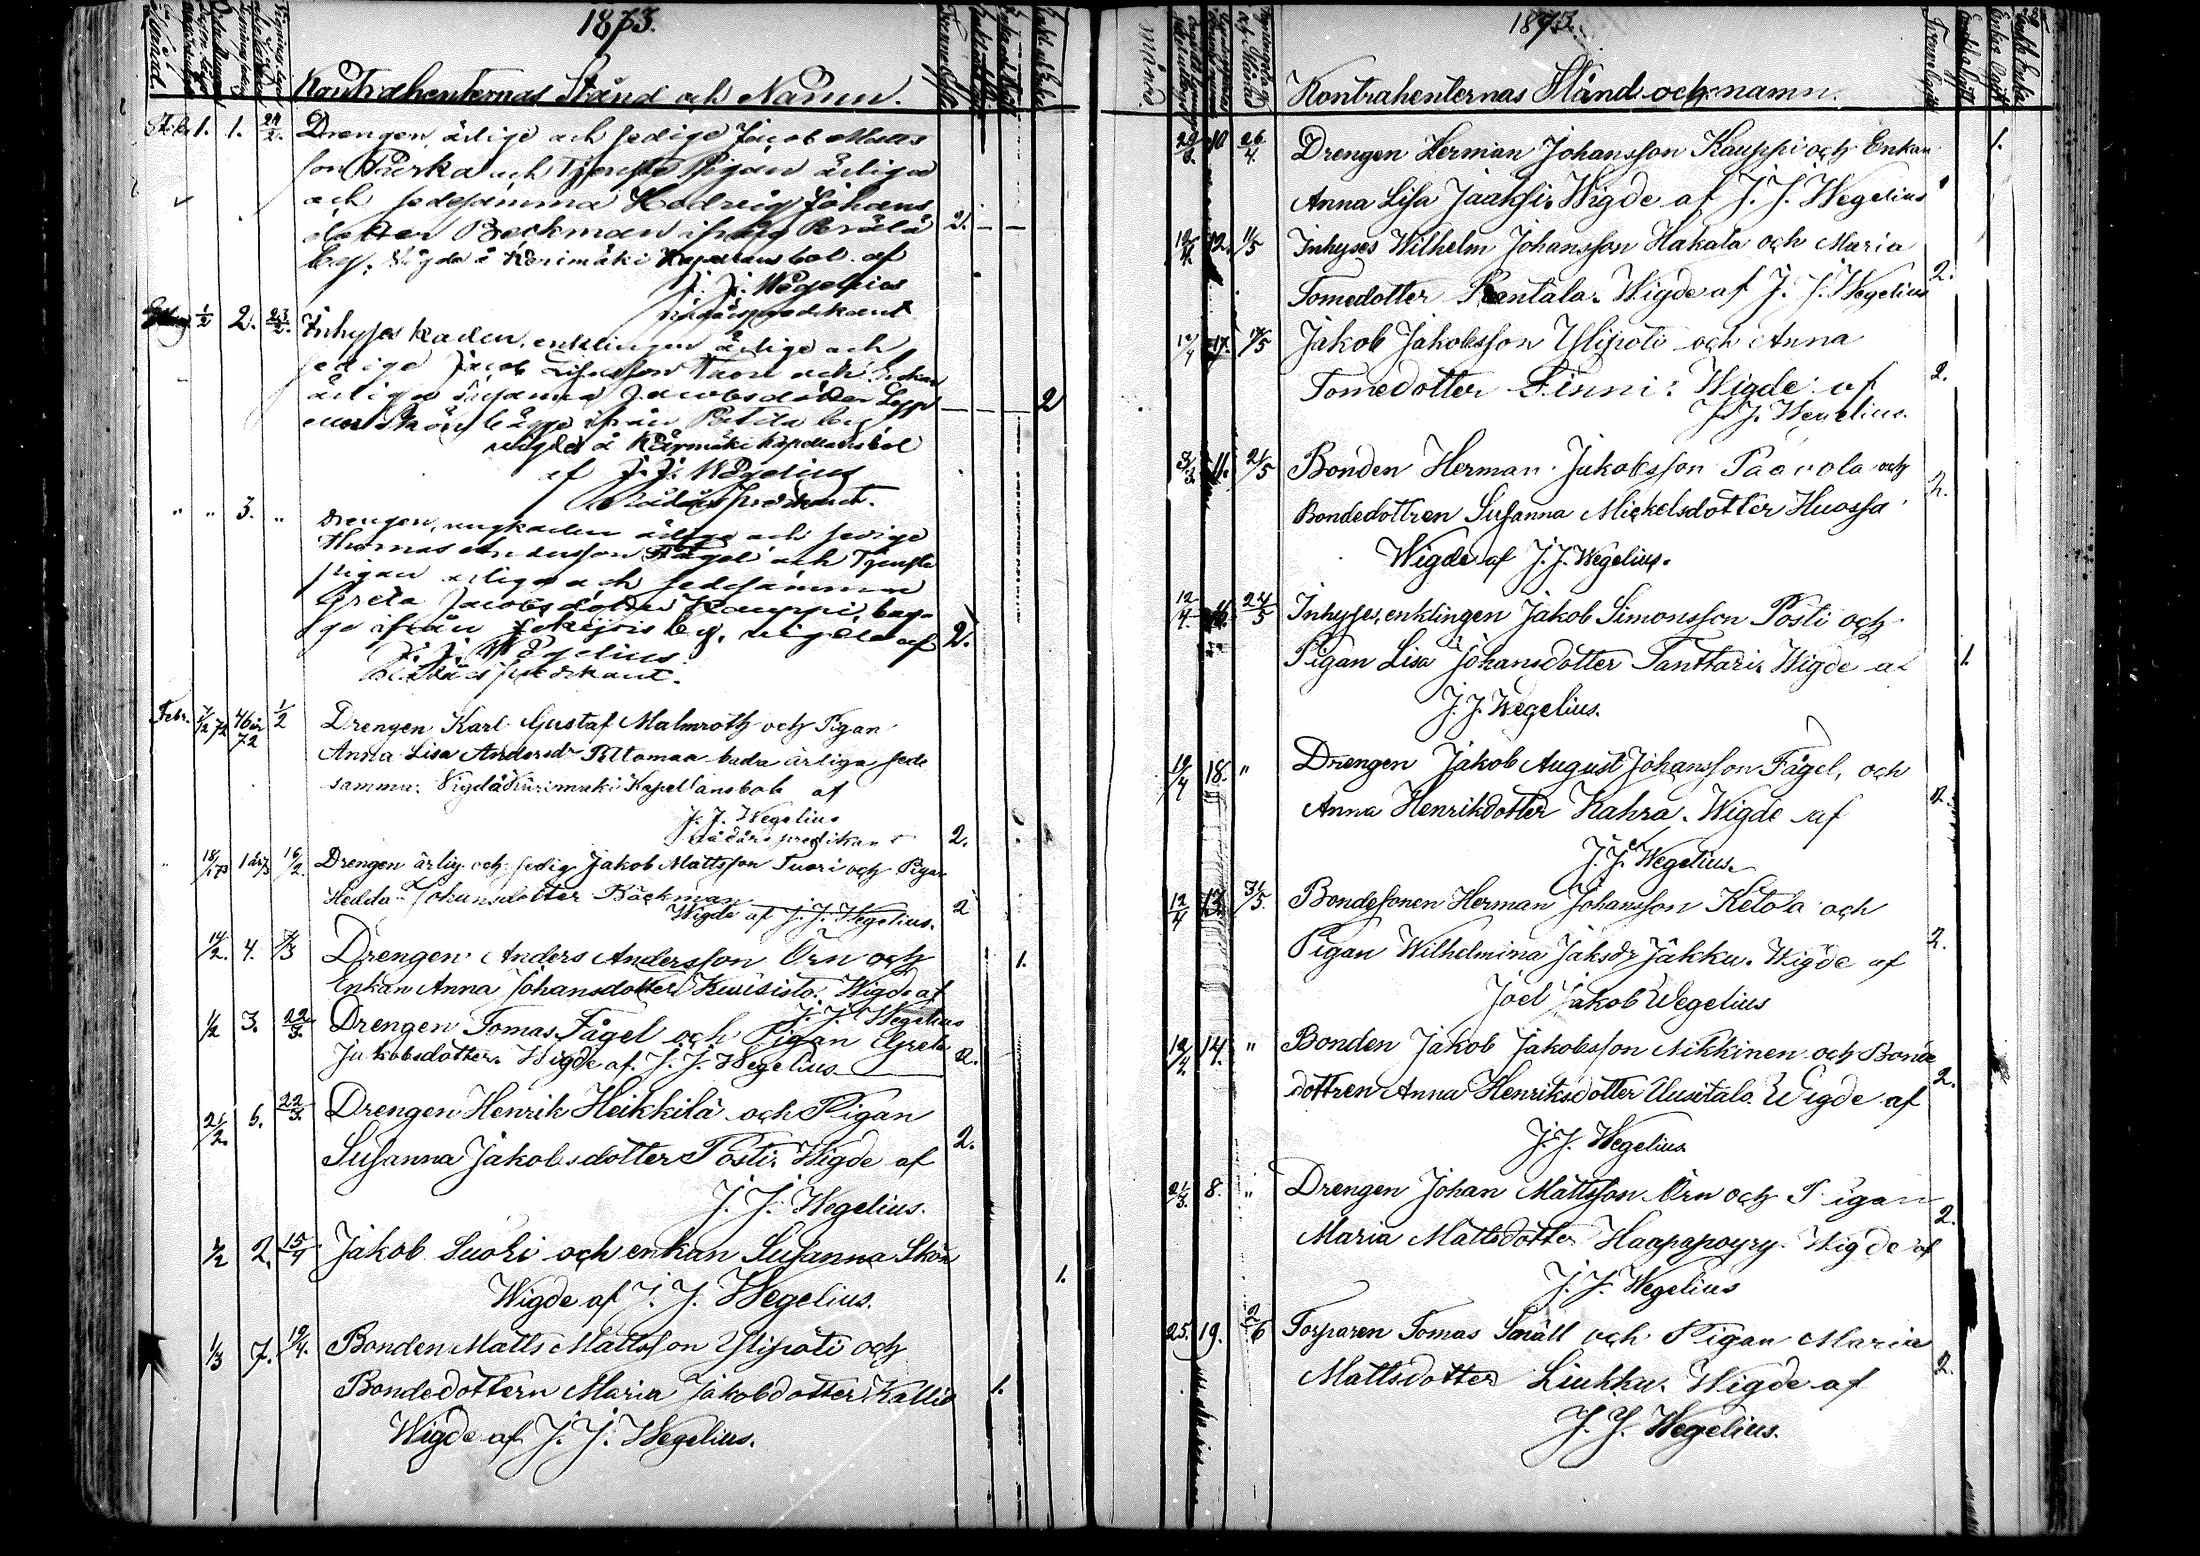 1873.
Kontrahenternas Stånd och Namn.
1. 1. 24/2. Drengen, ärlige och sedige Jacob Matts
son Pärka och Tjenste Pigan ärliga
och sedesamma Hedvig Johans
dotter Beckman ifrån Perälä 2.
by. Vigda å Kärimäki Kapellansbol af
J. J. Wegelius
nådårspredikant
1/2 2. 23/2. Inhyses karlen, enklingen ärlige och
sedige Jacob och Enkan
ärliga Susanna Jacobsdotter
Skön bägge ifrån by, 2
vigda å Kärimäki Kapellansbol
af J. J. Wegelius
Nådårspredikant.
" " 3. " Drengen, ungkarlen ärlige och sedige
Thomas Andersson Fågel och Tjenste
pigan ärliga och sedesamma
Greta Jacobsdotter Kauppi, bäg-
ge ifrån by, vigda af 2.
J. J. Wegelius
Nådårspredikant.
Febr. 1/2 Drengen Karl Gustaf Malmroth och Pigan
Anna Lisa Andersdr Peltomaa båda ärliga sede
samma. Vigda å Kärimäki Kapellansbol af
J. J. Wegelius
nådårs predikant 2.
16/2. Drengen ärlig och sedig Jakob Mattsson Tuori och Pigan
Hedda Johansdotter Bäckman
Wigde af J. J. Wegelius. 2
14/2. 4. 7/3 Drengen Anders Andersson Örn och 1.
Enkan Anna Johansdotter Kuisisto. Wigde af
J. J. Wegelius
1/2 3. 22/3. Drengen Tomas Fågel och Pigan Greta
Jakobsdotter. Wigde af J. J. Wegelius 2.
21/2. 5. 22/3. Drengen Henrik Heikkilä och Pigan
Susanna Jakobsdotter Posti. Wigde af 2.
J. J. Wegelius.
1/2 2. 15/4 Jakob Luoki och enkan Susanna Skön
Wigde af J. J. Wegelius. 1.
1/3 7. 19/4. Bonden Matts Mattsson Ylipoti och
Bondedottern Maria Jakobdotter Kallio 1.
Wigde af J. J. Wegelius.
1873.
månad.
Kontrahenternas Stånd och namn.
10 26/4. Drengen Herman Johansson Kauppi och Enkan 1.
Anna Lisa Jaaksi. Wigde af J. J. Wegelius
12. 11/5 Inhyses Wilhelm Johansson Hakala och Maria
Tomedotter Rantala. Wigde af J. J. Wegelius 2.
12/4 17. Jakob Jakobsson Ylipoti och Anna
Tomedotter Finni. Wigde af 2.
J. J. Wegelius.
11. 21/5 Bonden Herman Jakobsson Paavola och
Bondedottren Susanna Mickelsdotter Huossa 2.
Wigde af J. J. Wegelius.
12/4. 16. 24/5 Inhyses, enklingen Jakob Simonsson Posti och
Pigan Lisa Johansdotter Tanttari. Wigde af 1.
J. J. Wegelius.
19/4 18. " Drengen Jakob August Johansson Fågel, och
Anna Henrikdotter Kahra. Wigde af 2.
J. J. Wegelius.
12/4 13. 31/5. Bondesonen Herman Johansson Ketola och
Pigan Wilhelmina Jaksdr Jäkku. Wigde af 2.
Joel Jakob Wegelius
12/4 14. " Bonden Jakob Jakobsson Nikkinen och Bonde
dottren Anna Henriksdotter Uusitalo. Wigde af 2.
J. J. Wegelius
21/3. 8. " Drengen Johan Mattsson Örn och Pigan
Maria Mattsdotter Haapapoyry. Wigde af 2.
J. J. Wegelius
25. 19. 2/6 Torparen Tomas Snäll och Pigan Maria
Mattsdotter Liukku. Wigde af 2.
J. J. Wegelius.